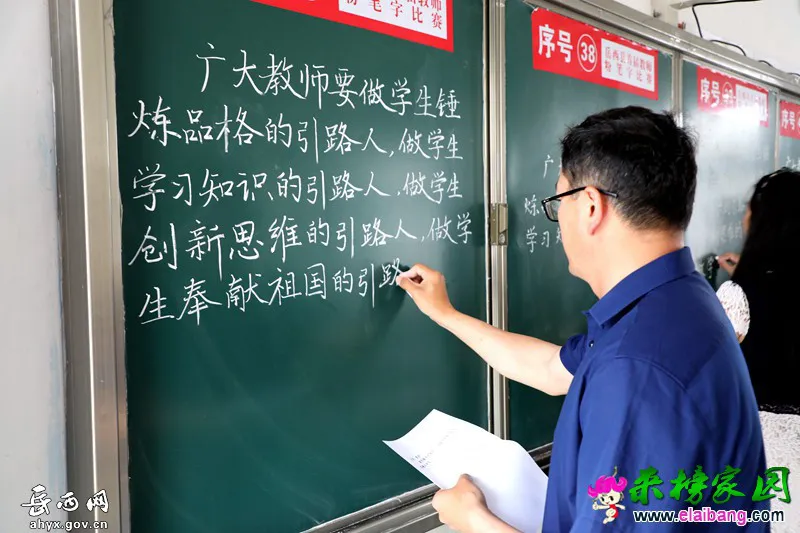 教师
粉笔字比赛
广大教师要做学生锤
炼品格的引路人,做学生
学习知识的引路人,做学生
创新思维的引路人,做学
生奉献祖国的引路
序号 38
岳西县首届教师
粉笔字比赛
广
炼
学习知
序号
序号
岳西网
ahyx.gov.cn
采榜家园
www.elaibang.com